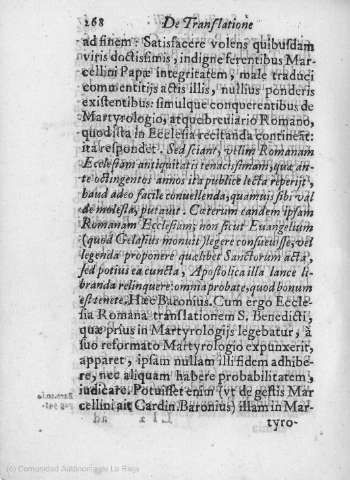 268 De Translatione
ad finem: Satisfacere volens quibusdam
viris doctissimis, indigne ferentibus Mar-
cellini Papæ integritatem, male traduci
commentitijs actis illis, nullius ponderis
existentibus: simulque conquerentibus de
Martyrologio, atque breuiario Romano,
quod ista in Ecclesia recitanda continent:
ita respondet. Sed sciant, vtim Romanam
Ecclesiam antiquitatis tenacissimam, quæ an-
te octingentos annos ita publicè lecta reperijt,
haud adeo facile conuellenda, quamuis sibi val
de molesta, putauit. Cæterum eandem ipsam
Romanam Ecclesiam; non sicut Euangelium
(quod Gelasius monuit) legere consueuisse, vel
legenda proponere quælibet Sanctorum acta,
sed potius ea cuncta, Apostolica illa lance li-
branda relinquere: omnia probate, quod bonum
est tenete. Hæc Baronius. Cum ergo Eccle-
sia Romana translationem S. Benedicti,
quæ prius in Martyrologijs legebatur, à
suo reformato Martyrologio expunxerit,
apparet, ipsam nullam illi fidem adhibe-
re, nec aliquam habere probabilitatem,
iudicare. Potuisset enim (vt de gestis Mar
cellini ait Cardin. Baronius) illam in Mar-
tyro-
(c) Comunidad Autónoma de La Rioja